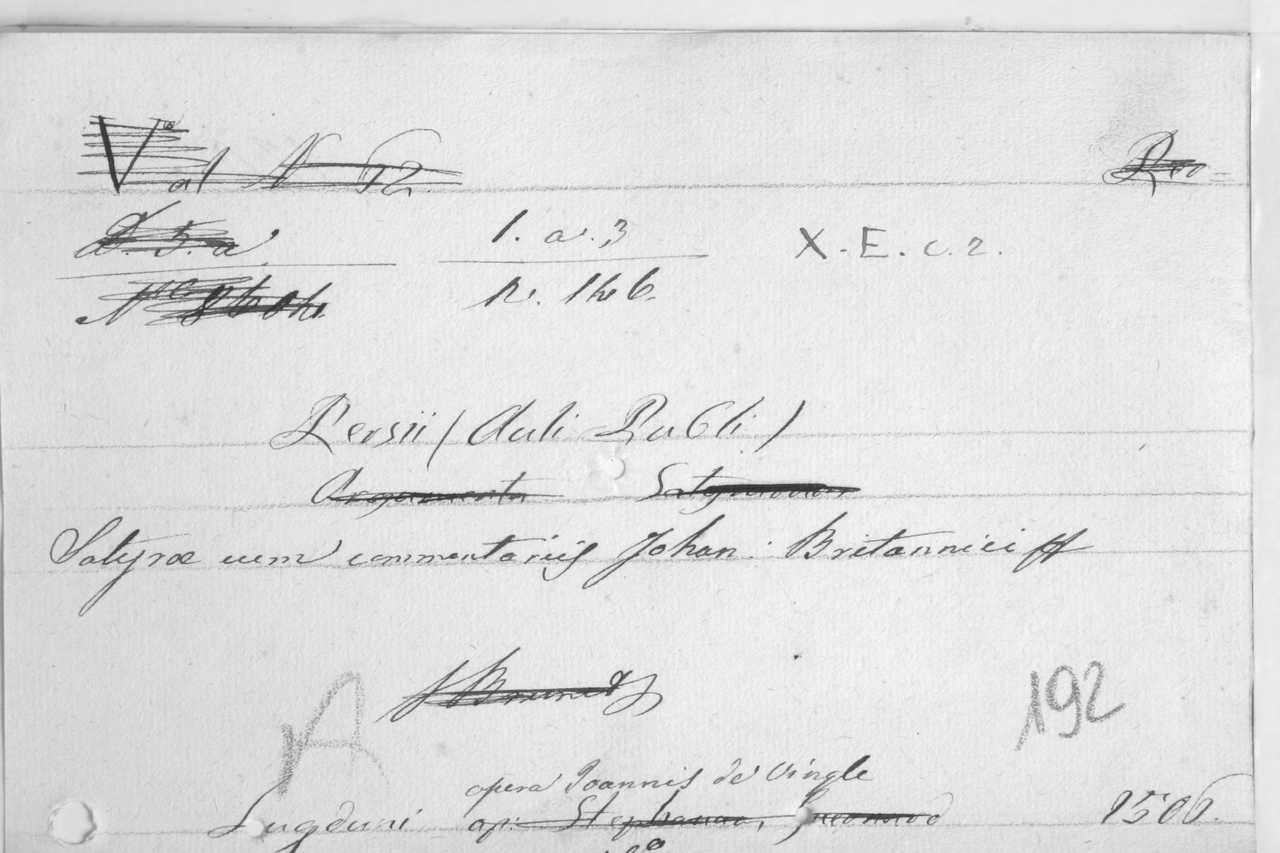 Vol N 62.
1. a. 3 X. E. c. 2.
N. 146.
Persii (Auli Publi)
Argumenta Satyrarum
Satyræ cum commentariis Johan: Britannici ff
192
A
opera Joannis de Vingle
Lugduni ap. Stephanum, 1506.